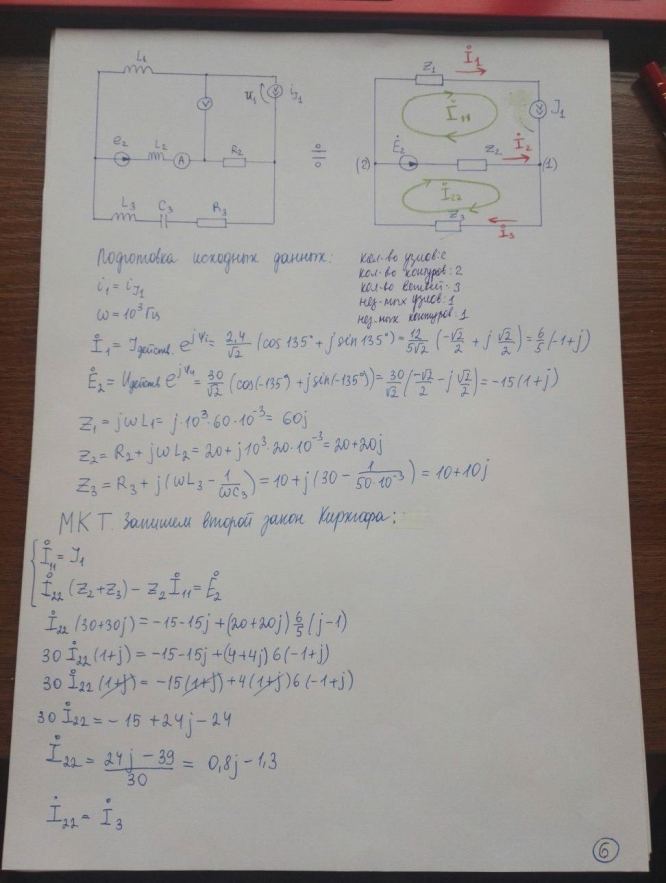 L₁
V
u₁
i_J₁
e₂
L₂
A
R₂
L₃
C₃
R₃
Z₁
İ₁
İ₁₁
J₁
(2)
Ė₂
Z₂
İ₂
(1)
İ₂₂
Z₃
İ₃
Подготовка исходных данных:
i₁ = i_J₁
ω = 10³ Гц
кол-во узлов: 2
кол-во контуров: 2
кол-во ветвей: 3
нез-мых узлов: 1
нез-мых контуров: 1
İ₁ = I действ. e^jψi = 2,4/√2 (cos 135° + j sin 135°) = 12/5√2 (-√2/2 + j √2/2) = 6/5 (-1+j)
Ė₂ = U действ e^jψu = 30/√2 (cos(-135°) + j sin(-135°)) = 30/√2 (-√2/2 - j √2/2) = -15(1+j)
Z₁ = jωL₁ = j·10³·60·10⁻³ = 60j
Z₂ = R₂ + jωL₂ = 20 + j10³·20·10⁻³ = 20+20j
Z₃ = R₃ + j(ωL₃ - 1/ωC₃) = 10 + j(30 - 1/50·10⁻³) = 10+10j
МКТ. Запишем второй закон Кирхгофа:
İ₁₁ = J₁
İ₂₂ (Z₂+Z₃) - Z₂ İ₁₁ = Ė₂
İ₂₂ (30+30j) = -15-15j + (20+20j) 6/5 (j-1)
30 İ₂₂ (1+j) = -15-15j + (4+4j) 6 (-1+j)
30 İ₂₂ (1+j) = -15 (1+j) + 4 (1+j) 6 (-1+j)
30 İ₂₂ = -15 + 24j - 24
İ₂₂ = 24j - 39/30 = 0,8j - 1,3
İ₂₂ = İ₃
6